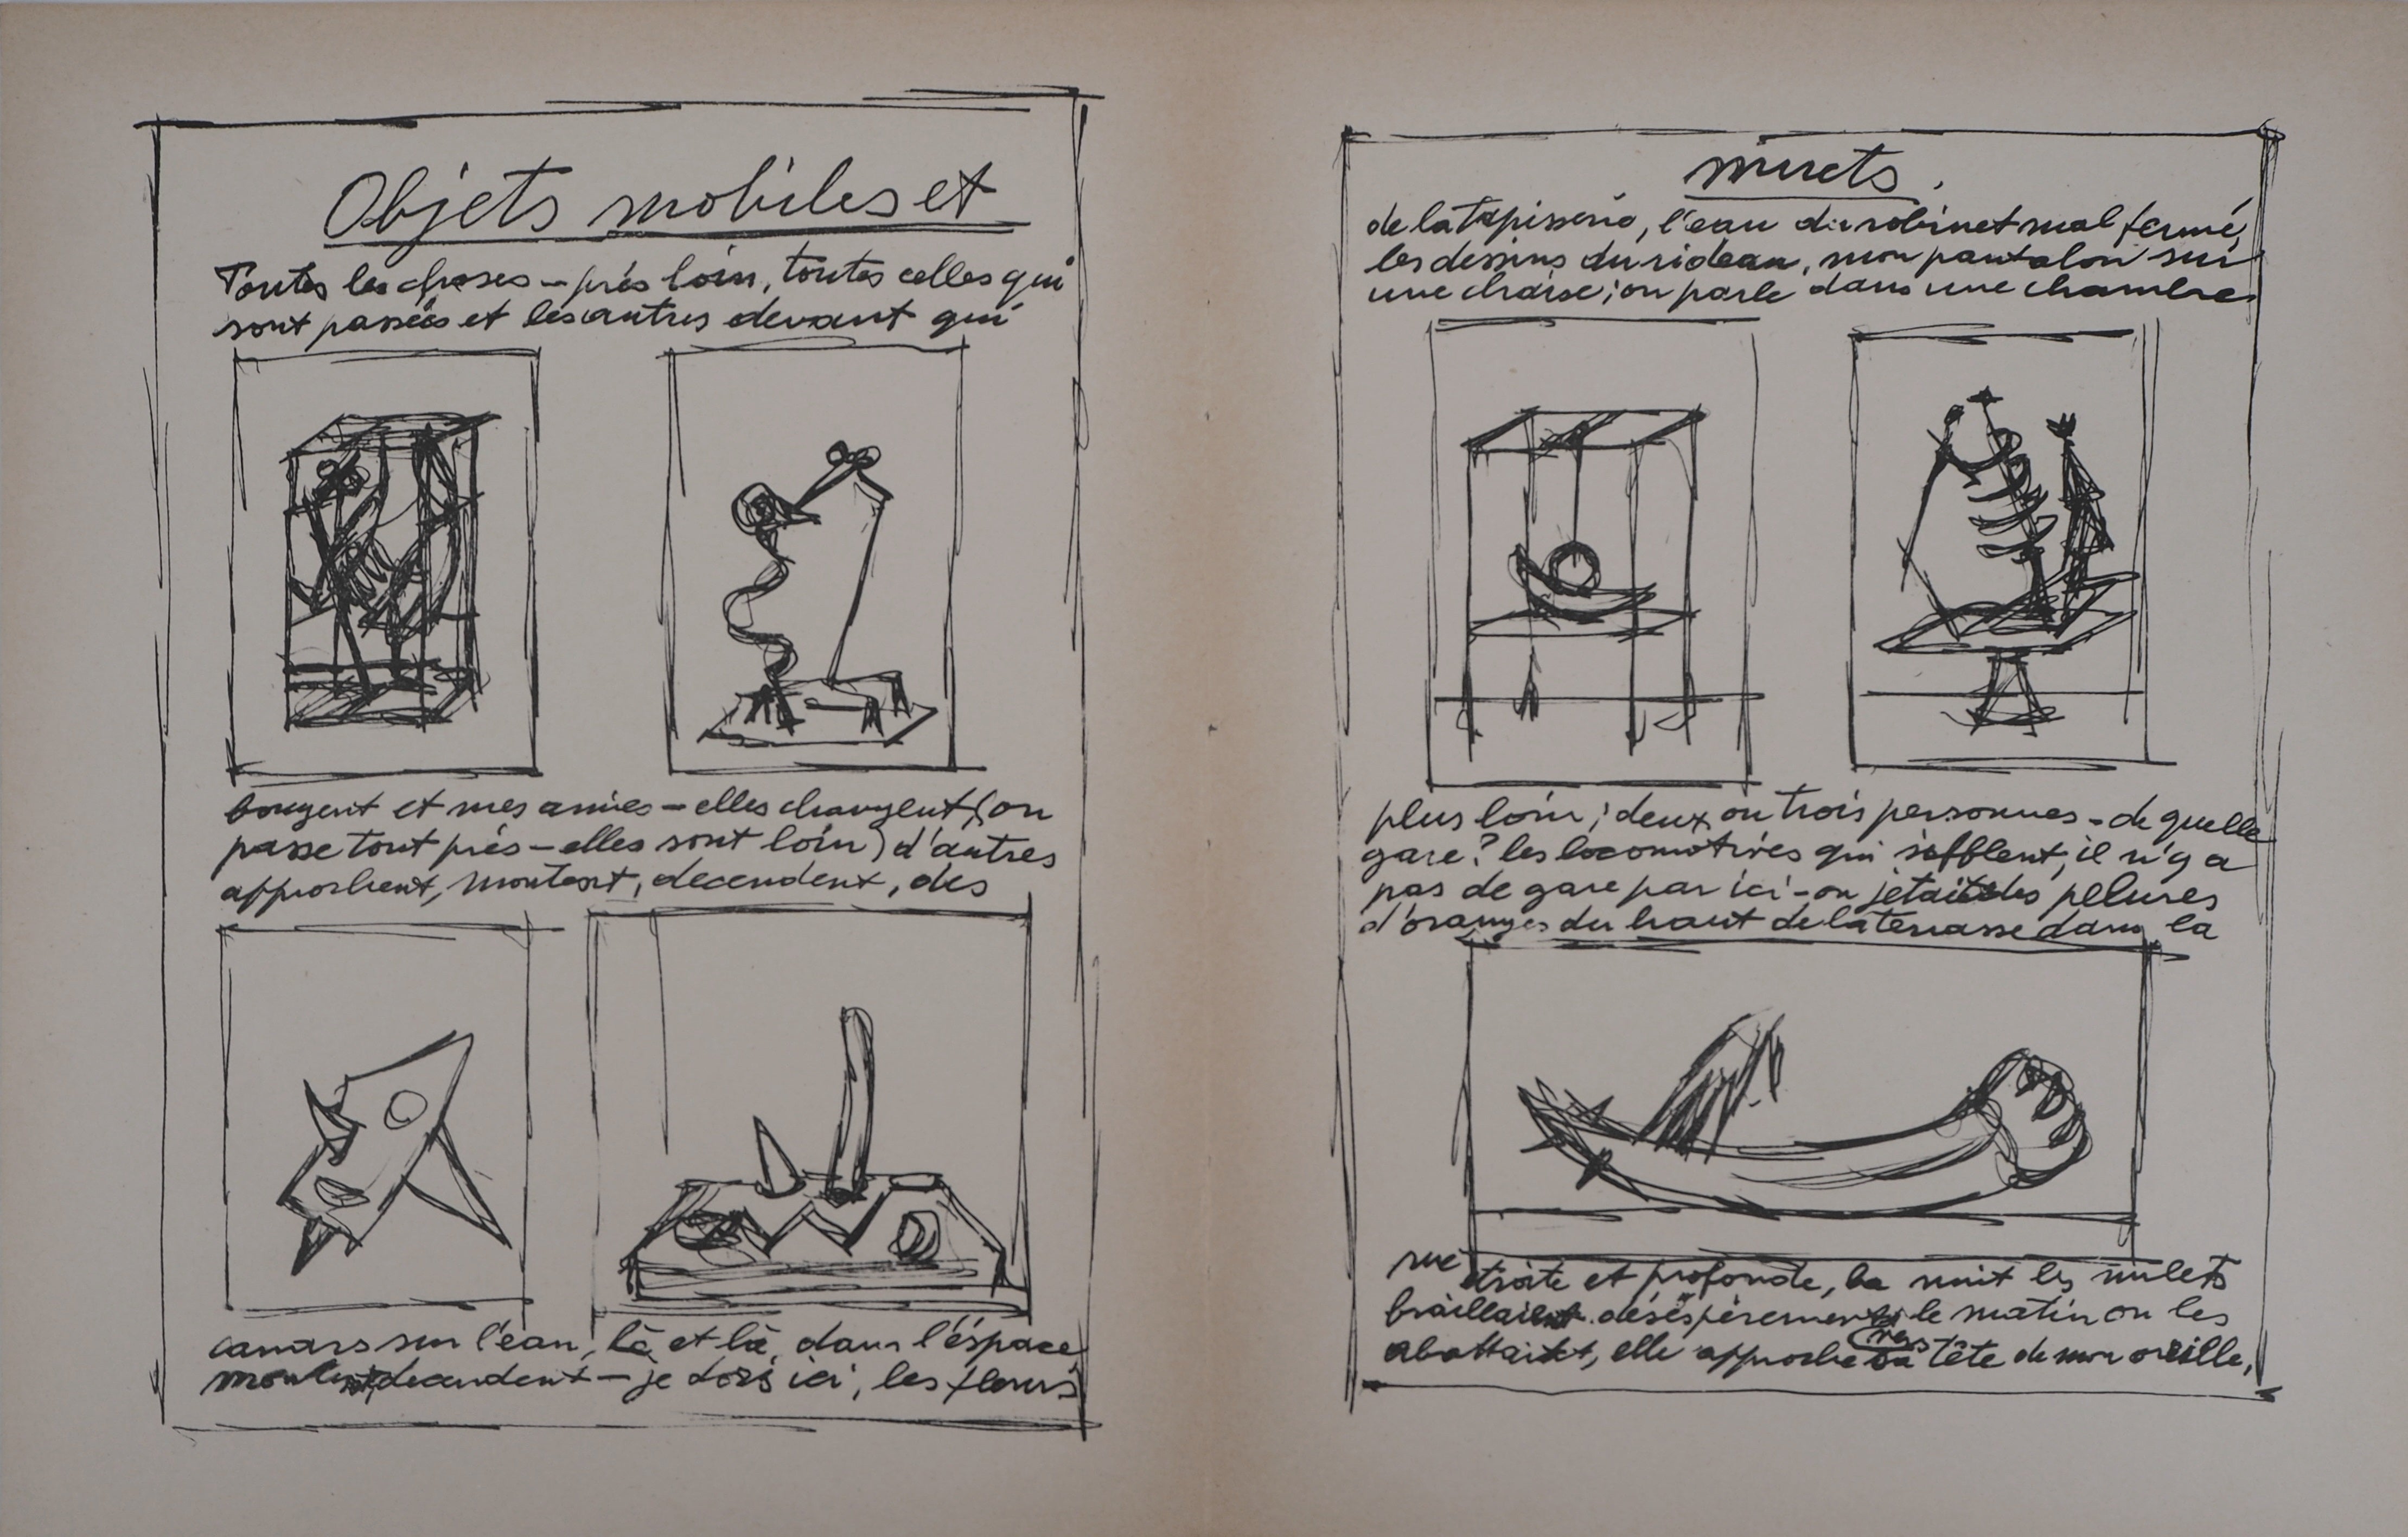 Objets mobiles et
Toutes les choses – près loin, toutes celles qui
sont passées et les autres devant qui
bougent et mes amies – elles changent (on
passe tout près – elles sont loin) d'autres
approchent, montent, decendent, des
canars sur l'eau, là et là, dans l'éspace
montent decendent – je dors ici, les fleurs
muets.
de la tapisserie, l'eau du robinet mal fermé,
les dessins du rideau, mon pantalon sur
une chaise; on parle dans une chambre
plus loin; deux ou trois personnes – de quelle
gare? les locomotives qui sifflent, il n'y a
pas de gare par ici – on jetait des pelures
d'oranges du haut de la terrasse dans la
rue étroite et profonde, la nuit les mulets
braillaient désespèrement, le matin on les
abattait, elle approche sa tête de mon oreille,